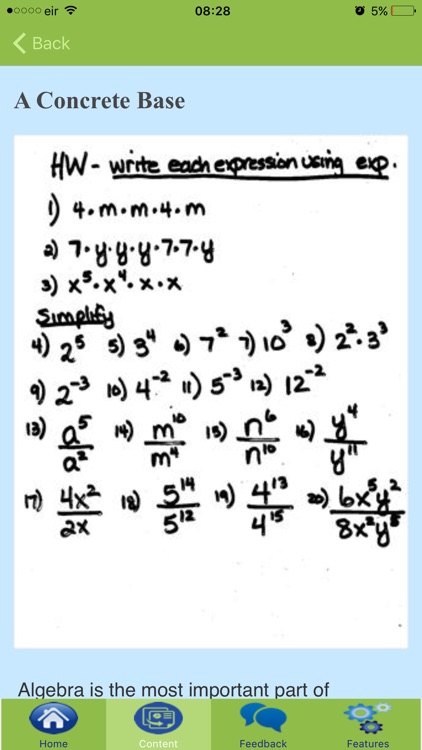 eir 08:28 5%
Back
A Concrete Base
HW - write each expression using exp.
1) 4·m·m·4·m
2) 7·y·y·y·7·7·y
3) x⁵·x⁴·x·x
Simplify
4) 2⁵ 5) 3⁴ 6) 7² 7) 10³ 8) 2²·3³
9) 2⁻³ 10) 4⁻² 11) 5⁻³ 12) 12⁻²
13) a⁵/a² 14) m¹⁰/m⁴ 15) n⁶/n¹⁰ 16) y⁴/y¹¹
17) 4x²/2x 18) 5¹⁴/5¹² 19) 4¹³/4¹⁵ 20) 6x⁵y²/8x²y⁵
Algebra is the most important part of
Home Content Feedback Features